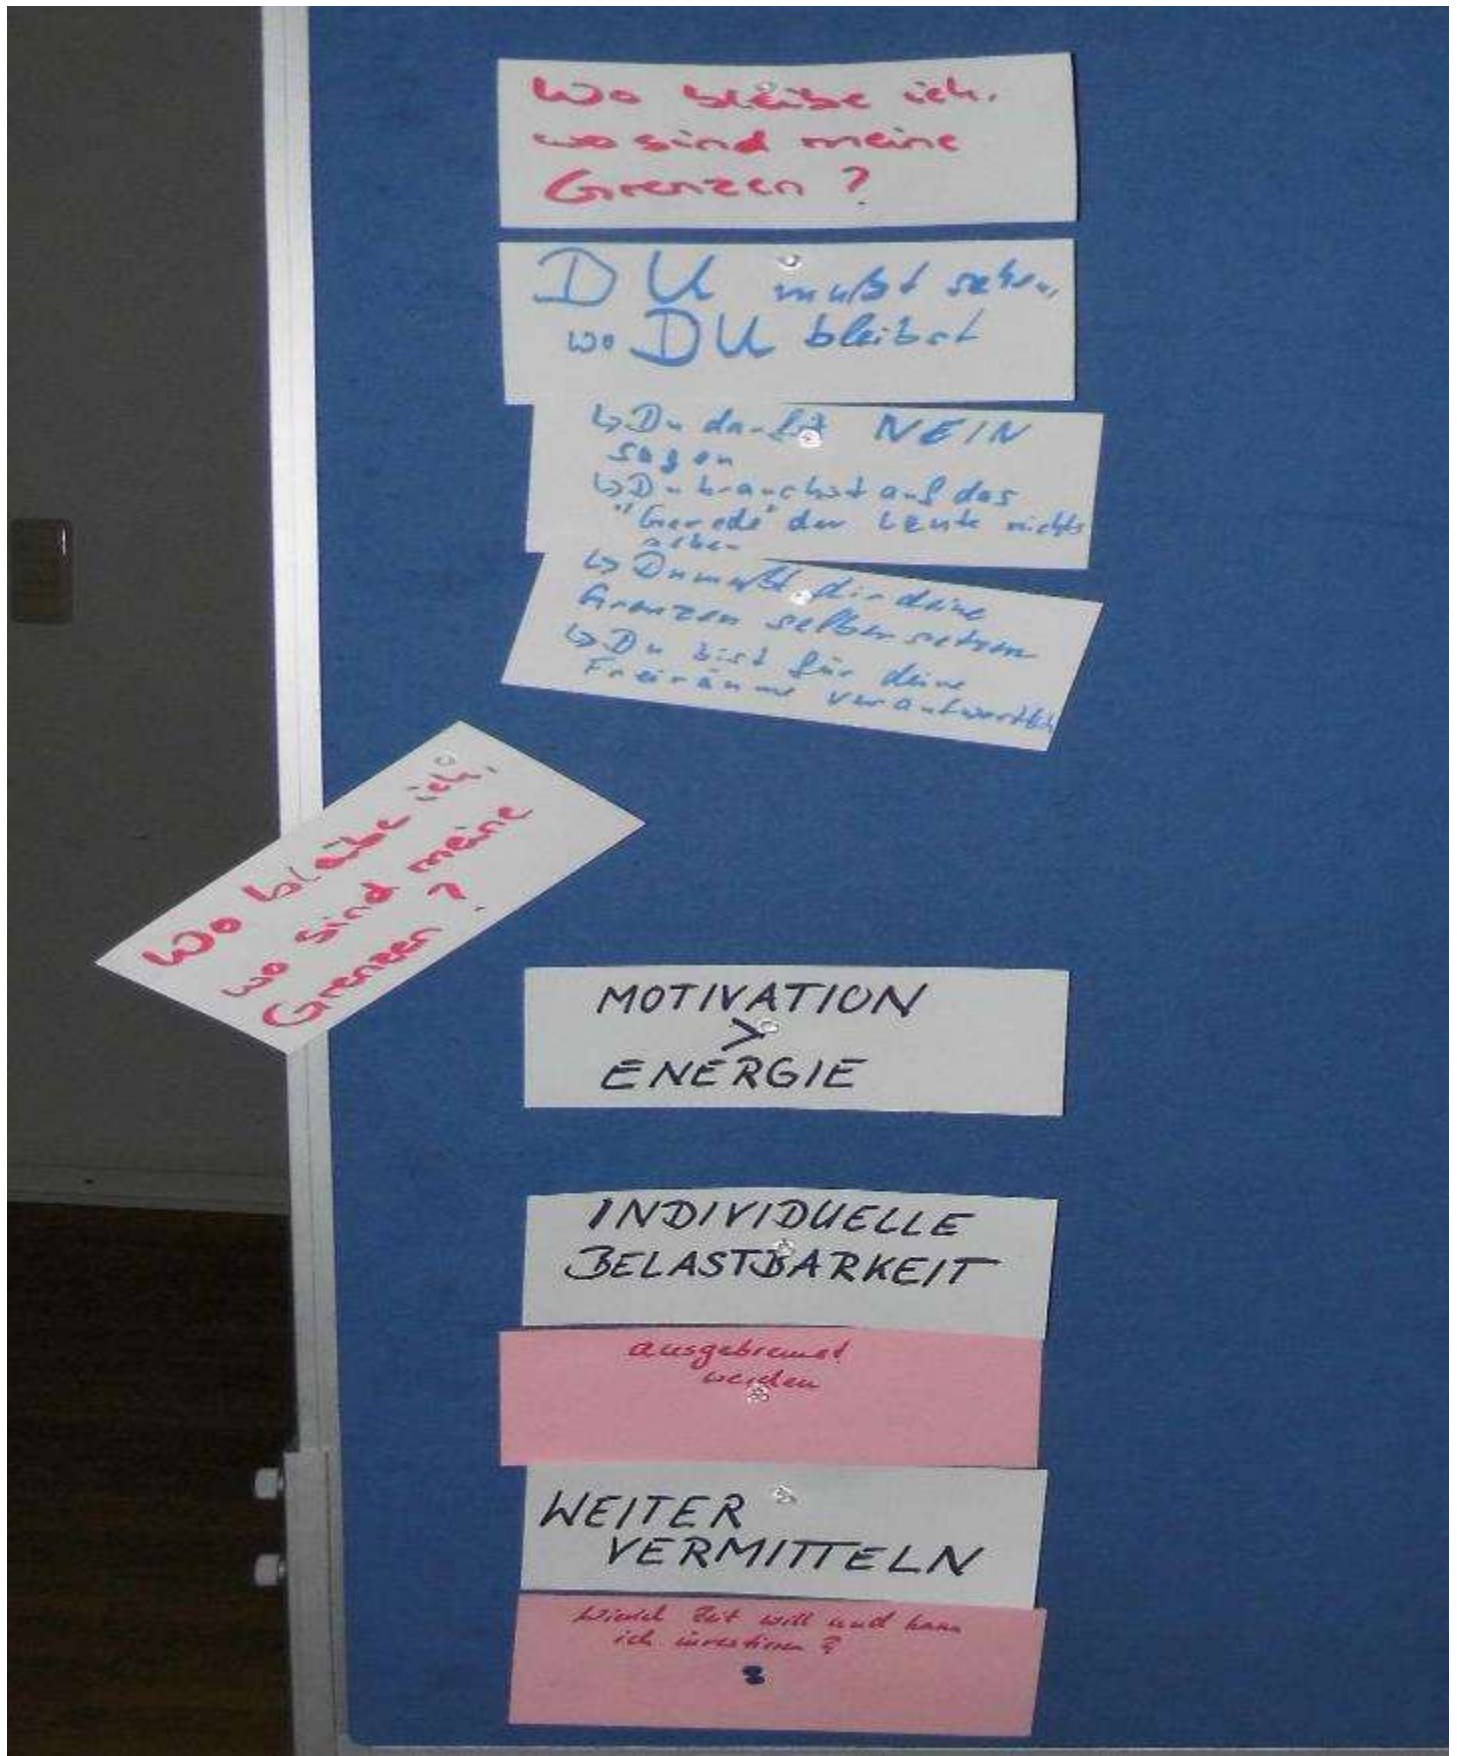 Wo bleibe ich,
wo sind meine
Grenzen ?
DU mußt sehen,
wo DU bleibst
↳ Du darfst NEIN
sagen
↳ Du brauchst auf das
"Gerede" der Leute nichts
geben
↳ Du mußt dir deine
Grenzen selber setzen
↳ Du bist für deine
Freiräume verantwortlich
Wo bleibe ich,
wo sind meine
Grenzen ?
MOTIVATION
>
ENERGIE
INDIVIDUELLE
BELASTBARKEIT
ausgebremst
werden
WEITER
VERMITTELN
Wieviel Zeit will und kann
ich investieren ?